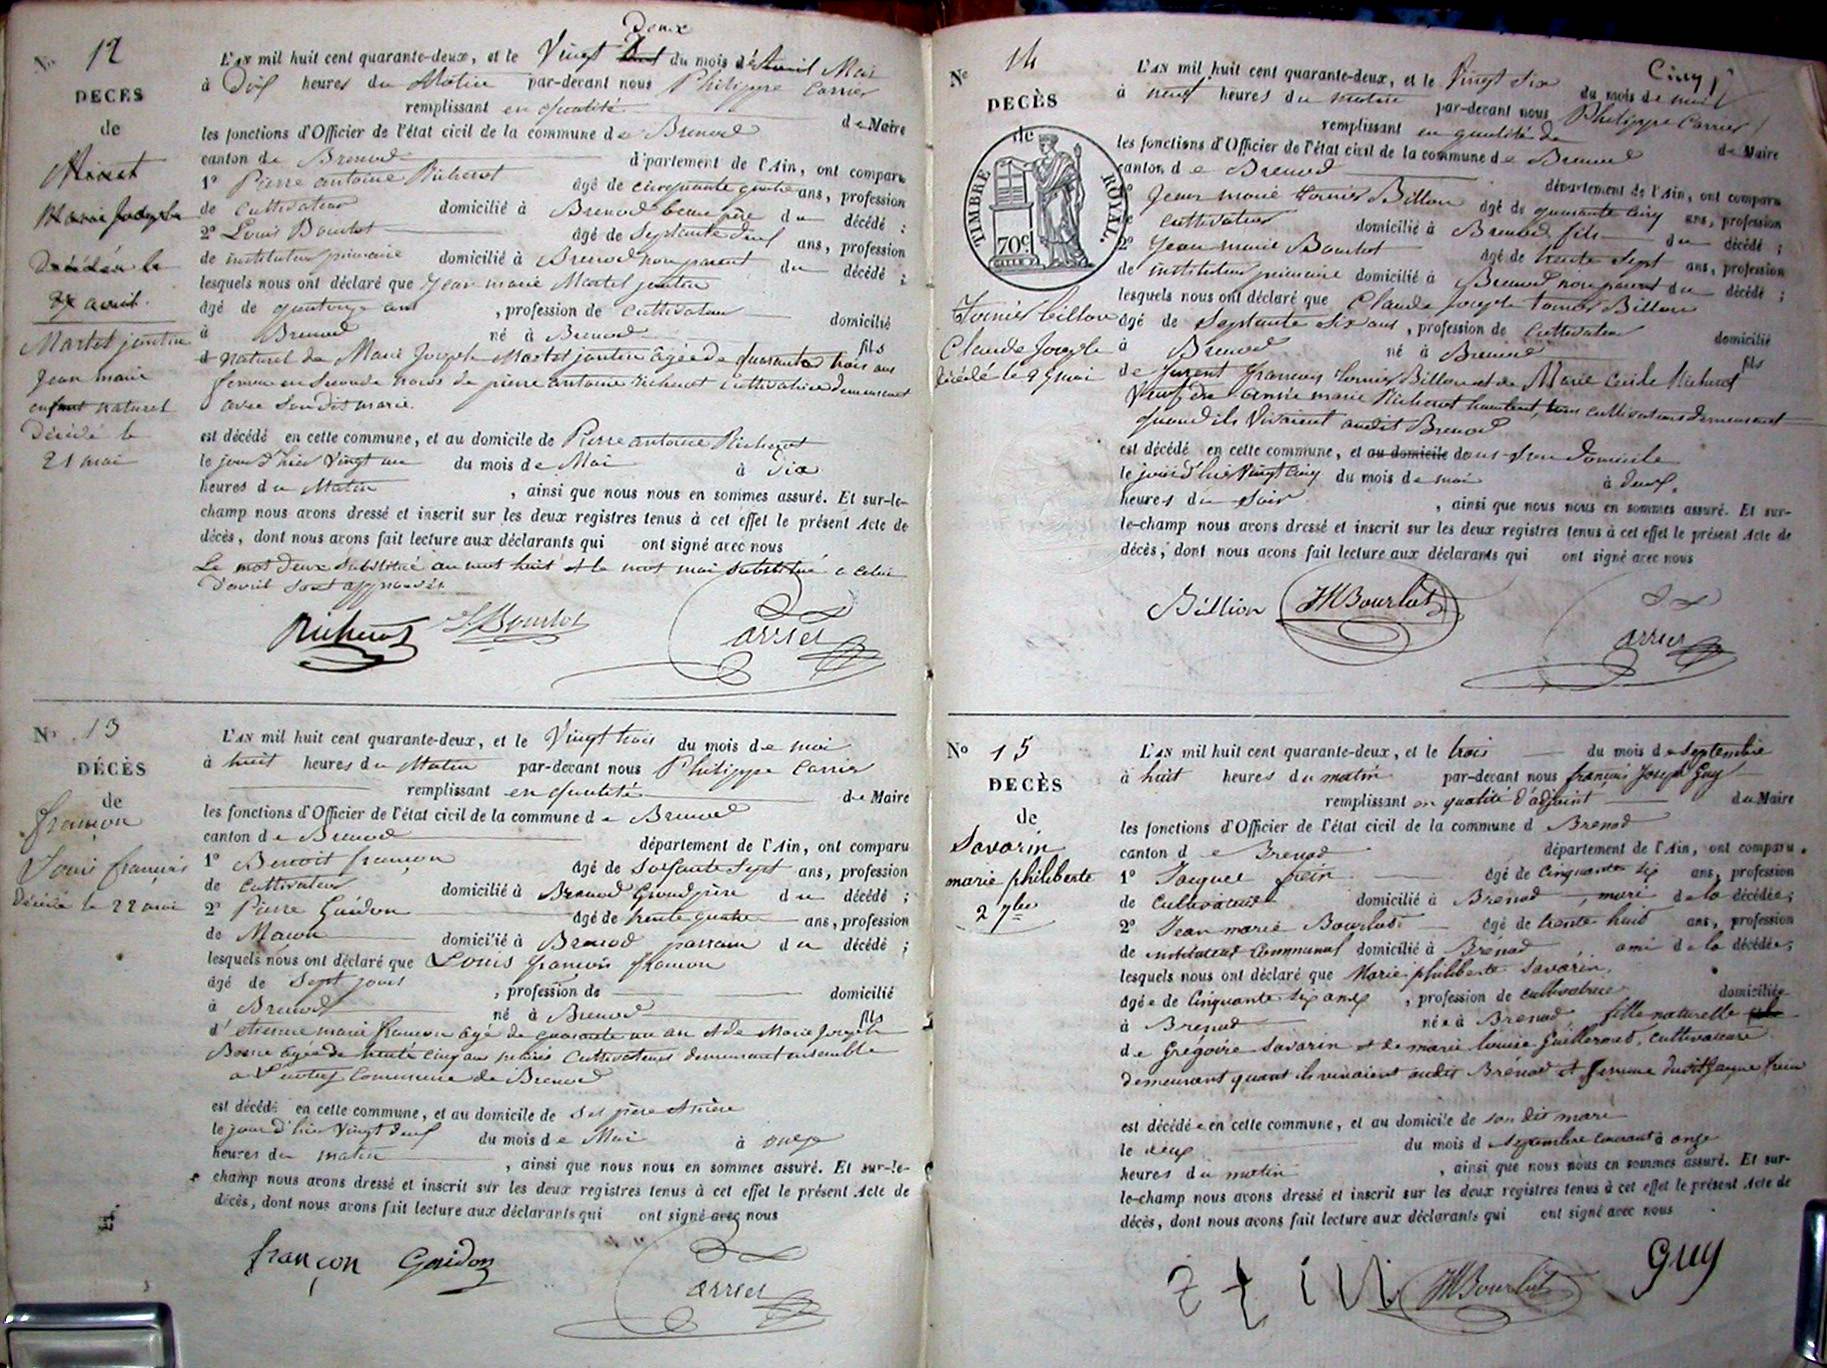 No 12
DECÈS
de
Marie Josephe
Décédée le
avril.
Martel jantin
Jean marie
enfant naturel
Décédé le
21 mai
Deux
L'AN mil huit cent quarante-deux, et le Vingt huit du mois d'Avril Mai
à Dix heures du Matin par-devant nous Philippe Carrier
remplissant en qualité de Maire
les fonctions d'Officier de l'état civil de la commune de Brenod
canton de Brenod département de l'Ain, ont comparu
1° Pierre antoine Richerot âgé de cinquante quatre ans, profession
de cultivateur domicilié à Brenod beau père du décédé ;
2° Louis Bourlot âgé de Septante deux ans, profession
de instituteur primaire domicilié à Brenod non parent du décédé ;
lesquels nous ont déclaré que Jean marie Martel jantin
âgé de quatorze ans, profession de cultivateur domicilié
à Brenod né à Brenod fils
d naturel de Marie Joseph Martel jantin âgée de quarante trois ans
femme en Seconde noces de pierre antoine Richerot Cultivatrice demeurant
avec Son dit marie.
est décédé en cette commune, et au domicile de Pierre antoine Richerot
le jour d'hier Vingt un du mois de Mai à Dix
heures du Matin, ainsi que nous nous en sommes assuré. Et sur-le-
champ nous avons dressé et inscrit sur les deux registres tenus à cet effet le présent Acte de
décès, dont nous avons fait lecture aux déclarants qui ont signé avec nous
Le mot Deux Substitué au mot huit et le mot mai substitué a celui
D'avril Sont approuvés.
Richerot L Bourlot Carrier
No 13
DÉCÈS
de
françon
Louis françois
Décédé le 22 mai
L'AN mil huit cent quarante-deux, et le Vingt trois du mois de mai
à huit heures du Matin par-devant nous Philippe Carrier
remplissant en qualité de Maire
les fonctions d'Officier de l'état civil de la commune de Brenod
canton de Brenod département de l'Ain, ont comparu
1° Benoit françon âgé de Soixante Sept ans, profession
de Cultivateur domicilié à Brenod Grand père du décédé ;
2° Pierre Guidon âgé de trente quatre ans, profession
de Maçon domicilié à Brenod parrain du décédé ;
lesquels nous ont déclaré que Louis françois françon
âgé de Sept jours, profession de domicilié
à Brenod né à Brenod fils
d'etienne marie françon âgé de quarante un an et de Marie Josephe
âgée de trente cinq ans mariés Cultivateurs demeurant ensemble
Commune de Brenod
est décédé en cette commune, et au domicile de Ses père et mère
le jour d'hier Vingt deux du mois de Mai à onze
heures du matin, ainsi que nous nous en sommes assuré. Et sur-le-
champ nous avons dressé et inscrit sur les deux registres tenus à cet effet le présent Acte de
décès, dont nous avons fait lecture aux déclarants qui ont signé avec nous
françon Guidon Carrier
No 14
DECÈS
de
TIMBRE ROYAL.
70c
Tornier billon
Claude Joseph
Décédé le 25 mai
L'AN mil huit cent quarante-deux, et le Vingt Six du mois de mai
à neuf heures du matin par-devant nous Philippe Carrier
remplissant en qualité de de Maire
les fonctions d'Officier de l'état civil de la commune de Brenod
canton de Brenod département de l'Ain, ont comparu
1° Jean marie tornier Billon âgé de quarante cinq ans, profession
de Cultivateur domicilié à Brenod fils du décédé ;
2° Jean marie Bourlot âgé de trente Sept ans, profession
de instituteur primaire domicilié à Brenod non parent du décédé ;
lesquels nous ont déclaré que Claude Joseph tornier Billon
âgé de Septante Six ans, profession de Cultivateur domicilié
à Brenod né à Brenod fils
de françois tornier Billon et de Marie Cécile Richerot
Veuf de marie Richerot cultivateurs demeurant
quand ils Vivaient audit Brenod
est décédé en cette commune, et au domicile dans Son Domicile
le jour d'hier Vingt cinq du mois de mai à deux
heures du Soir, ainsi que nous nous en sommes assuré. Et sur-
le-champ nous avons dressé et inscrit sur les deux registres tenus à cet effet le présent Acte de
décès, dont nous avons fait lecture aux déclarants qui ont signé avec nous
Billion JM Bourlot Carrier
No 15
DECÈS
de
Savarin
marie philiberte
2 7bre
L'AN mil huit cent quarante-deux, et le trois du mois de septembre
à huit heures du matin par-devant nous françois Joseph Guy
remplissant en qualité d'adjoint du Maire
les fonctions d'Officier de l'état civil de la commune d Brenod
canton de Brenod département de l'Ain, ont comparu
1° Jacques âgé de cinquante six ans, profession
de Cultivateur domicilié à Brenod, mari de la décédée ;
2° Jean marie Bourlot âgé de trente huit ans, profession
de instituteur Communal domicilié à Brenod ami de la décédée ;
lesquels nous ont déclaré que Marie philiberte Savarin,
âgée de Cinquante six ans, profession de cultivatrice domiciliée
à Brenod née à Brenod fille naturelle fils
de Grégoire Savarin et de marie louise Guillermet, cultivateurs
demeurant quant ils vivaient audit Brénod et femme dudit Jacques
est décédée en cette commune, et au domicile de son dit mari
le deux du mois d septembre courant à onze
heures du matin, ainsi que nous nous en sommes assuré. Et sur-
le-champ nous avons dressé et inscrit sur les deux registres tenus à cet effet le présent Acte de
décès, dont nous avons fait lecture aux déclarants qui ont signé avec nous
JM Bourlot Guy